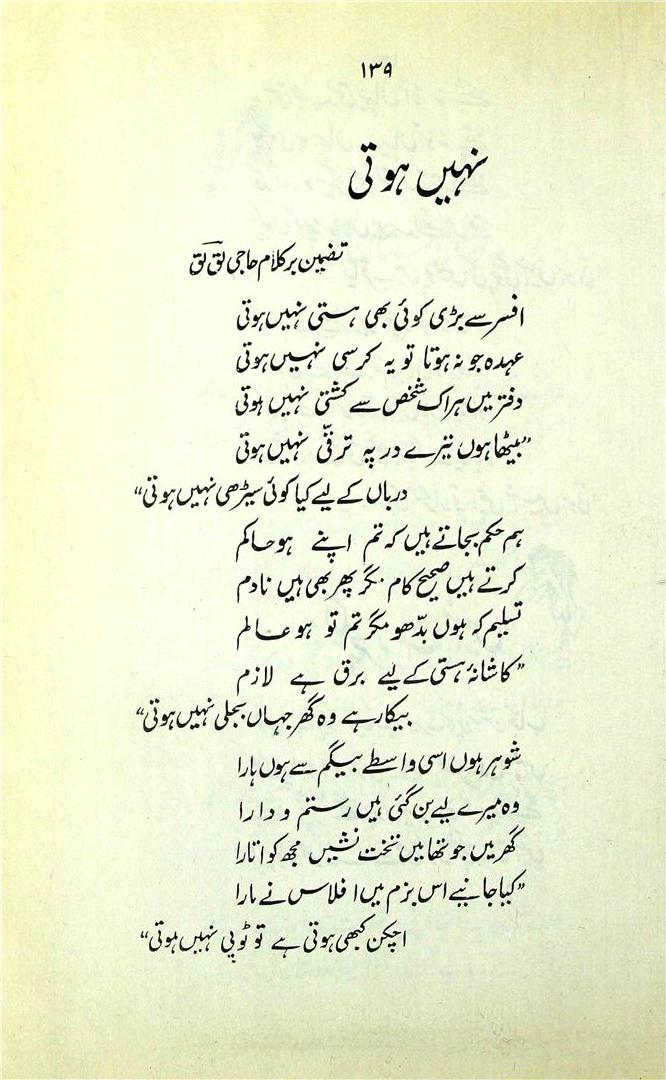 ۱۳۹
نہیں ہوتی
تضمین بر کلام حاجی لق لق
افسر سے بڑی کوئی بھی ہستی نہیں ہوتی
عہدہ جو نہ ہوتا تو یہ کرسی نہیں ہوتی
دفتر میں ہر اک شخص سے کشتی نہیں ہوتی
”بیٹھا ہوں تیرے در پہ ترقی نہیں ہوتی
درباں کے لیے کیا کوئی سیڑھی نہیں ہوتی“
ہم حکم بجاتے ہیں کہ تم اپنے ہو حاکم
کرتے ہیں صحیح کام مگر پھر بھی ہیں نادم
تسلیم کہ ہوں بدّھو مگر تم تو ہو عالم
”کاشانۂ ہستی کے لیے برق ہے لازم
بیکار ہے وہ گھر جہاں بجلی نہیں ہوتی“
شوہر ہوں اسی واسطے بیگم سے ہوں ہارا
وہ میرے لیے بن گئی ہیں رستم و دارا
گھر میں جو تھا میں تخت نشیں مجھ کو اتارا
”کیا جانیے اس بزم میں افلاس نے مارا
اچکن کبھی ہوتی ہے تو ٹوپی نہیں ہوتی“